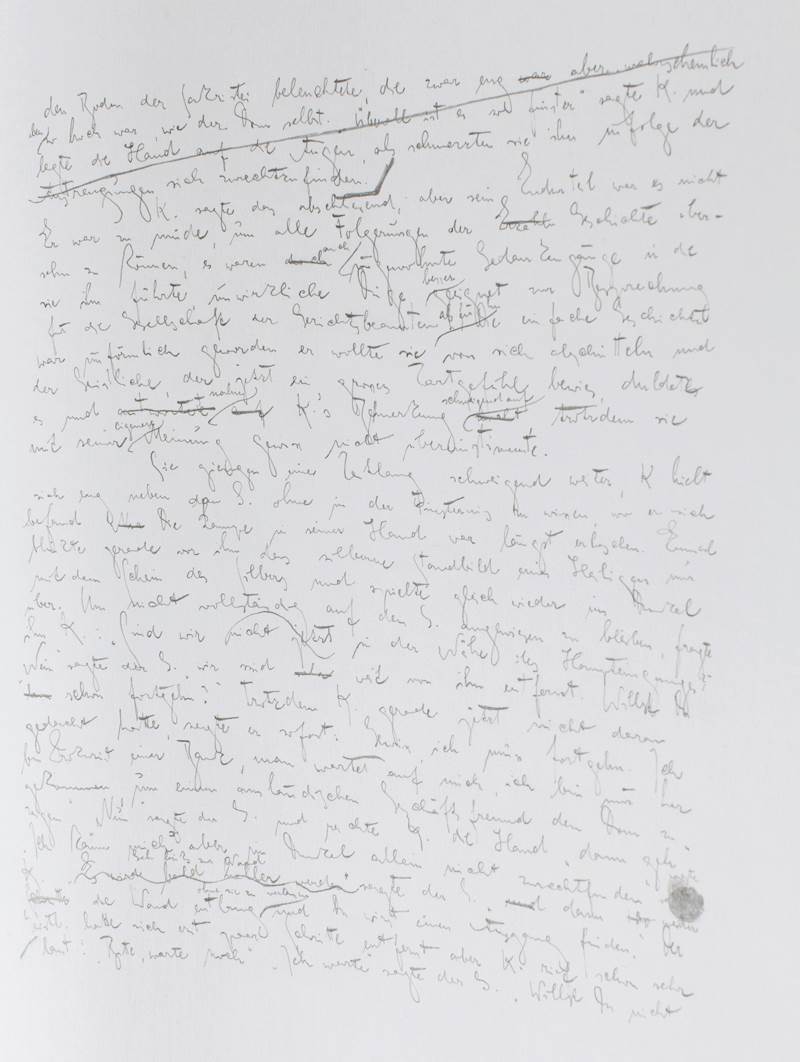 den Boden der Sakristei beleuchtete, die zwar eng war aber wahrscheinlich
so hoch war, wie der Dom selbst. „Überall ist es so finster" sagte K. und
legte die Hand auf die Augen, als schmerzten sie ihm infolge der
Anstrengungen sich zurechtzufinden.
K. sagte das abschließend, aber sein Endurteil war es nicht
Er war zu müde, um alle Folgerungen der Geschichte über-
sehn zu können, es waren auch ungewohnte Gedankengänge in die
sie ihn führte unwirkliche Dinge, besser geeignet zur Besprechung
für die Gesellschaft der Gerichtsbeamten als für ihn Die einfache Geschichte
war unförmlich geworden er wollte sie von sich abschütteln und
der Geistliche, der jetzt ein großes Zartgefühl bewies, duldete
es und nahm K.'s Bemerkung schweigend auf, trotzdem sie
mit seiner eigenen Meinung gewiss nicht übereinstimmte.
Sie giengen eine Zeitlang schweigend weiter, K hielt
sich eng neben dem G. ohne in der Finsternis zu wissen, wo er sich
befand Die Lampe in seiner Hand war längst erloschen. Einmal
blinkte gerade vor ihm das silberne Standbild eines Heiligen nur
mit dem Schein des Silbers und spielte gleich wieder ins Dunkel
über. Um nicht vollständig auf den G. angewiesen zu bleiben, fragte
ihn K.: „Sind wir jetzt nicht in der Nähe des Haupteinganges?"
„Nein" sagte der G. „wir sind weit von ihm entfernt. Willst Du
schon fortgehn?" Trotzdem K. gerade jetzt nicht daran
gedacht hatte, sagte er sofort: Gewiss, ich muss fortgehn. Ich
bin Prokurist einer Bank, man wartet auf mich, ich bin nur her
gekommen um einem ausländischen Geschäftsfreund den Dom zu
zeigen" „Nun" sagte der G. und reichte K. die Hand „dann geh
Ich kann mich aber im Dunkel allein nicht zurechtfinden sagte
K.
Es wird bald heller werden" sagte der G.
links zur Wand
die Wand entlang ohne sie zu verlassen und Du wirst einen Ausgang finden. Der
Geistl. hatte sich erst paar Schritte entfernt aber K. rief schon sehr
laut: „Bitte, warte noch" „Ich warte" sagte der G. „Willst Du nicht